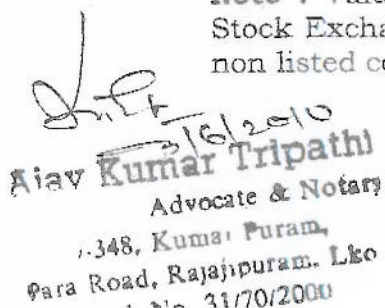 Stock Excha
non listed co
3/6/2010
Ajay Kumar Tripathi
Advocate & Notary
348, Kumar Puram,
Para Road, Rajajipuram, Lko
No. 31/70/2000